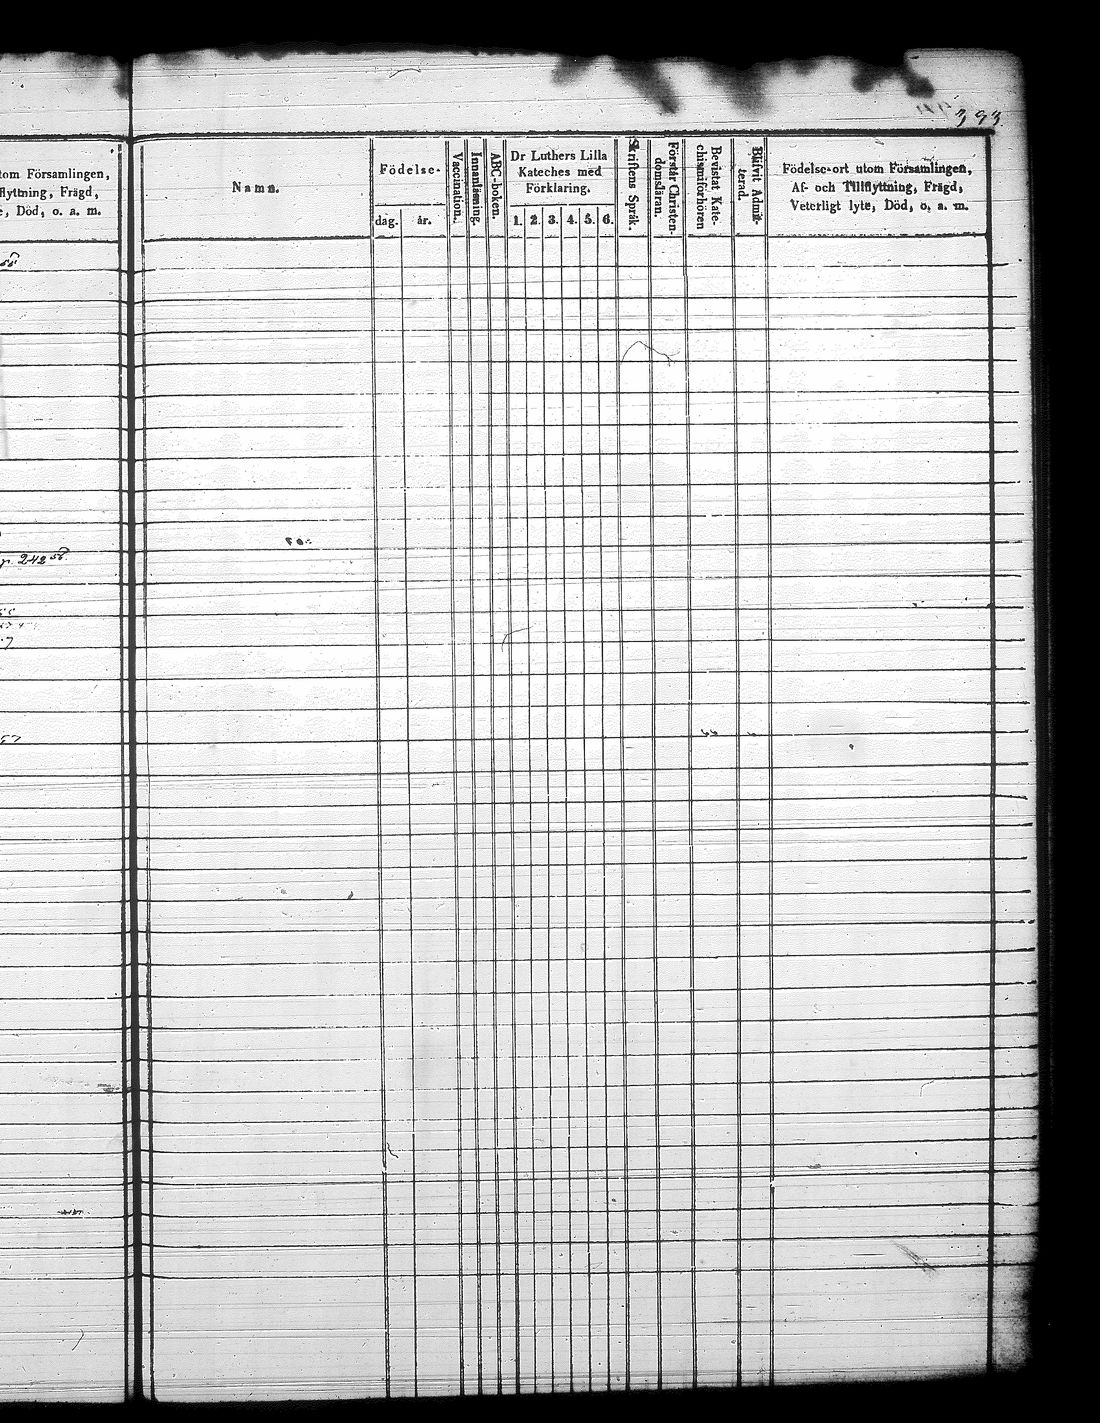 393
tom Församlingen,
flyttning, Frägd,
e, Död, o. a. m.
Namn.
Födelse-
dag.
år.
Vaccination.
Innanläsning.
ABC-boken.
Dr Luthers Lilla
Kateches med
Förklaring.
1. 2. 3. 4. 5. 6.
Skriftens Språk.
Förstår Christen-
domsläran.
Bevistat Kate-
chismiförhören
Blifvit Admit-
terad.
Födelse-ort utom Församlingen,
Af- och Tillflyttning, Frägd,
Veterligt lyte, Död, o. a. m.
p. 242
57